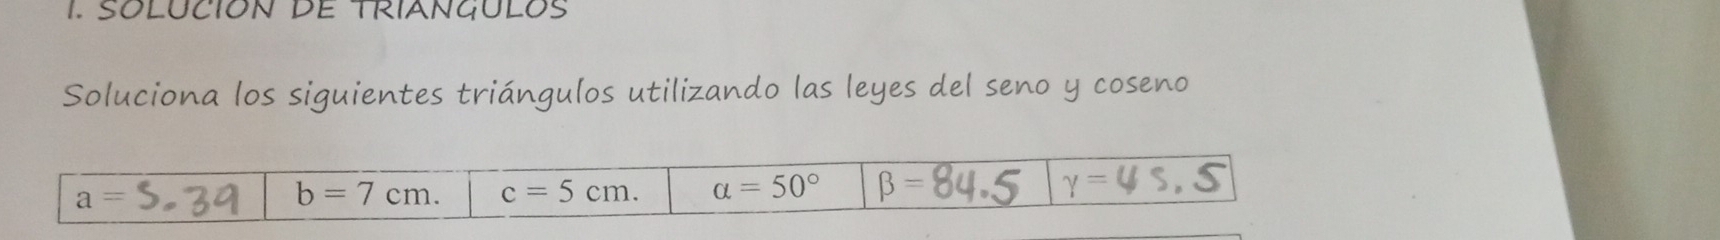 1. SOLUCIÓN DE TRIÁNGULOS
Soluciona los siguientes triángulos utilizando las leyes del seno y coseno
a = 5.39 b = 7 cm. c = 5 cm. α = 50° β = 84.5 γ = 45.5